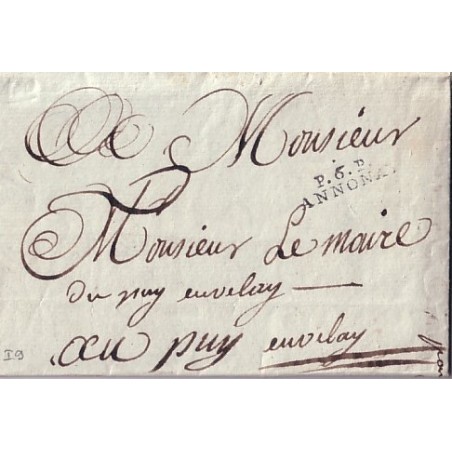 A Monsieur
P.6.P.
ANNONAY
Monsieur Le maire
du puy envelay
au puy envelay
I9